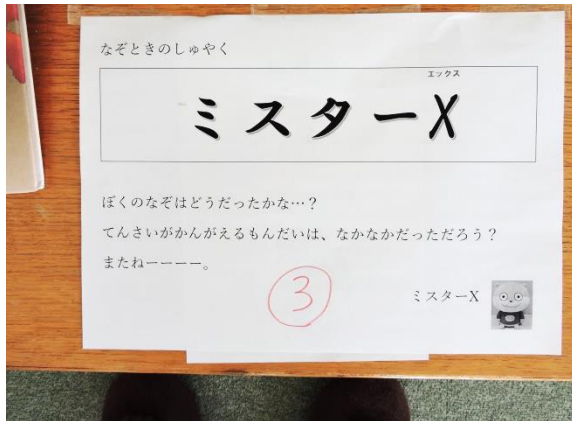 なぞときのしゅやく
エックス
ミスターX
ぼくのなぞはどうだったかな…？
てんさいがかんがえるもんだいは、なかなかだっただろう？
またねーーーー。
③
ミスターX